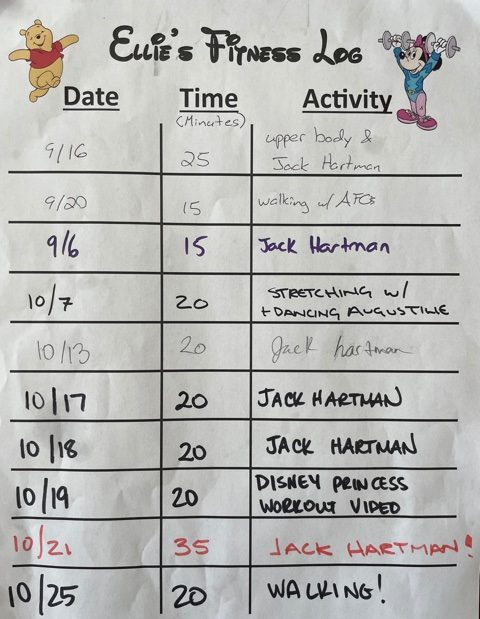 Ellie's Fitness Log
Date Time Activity
(Minutes)
9/16 25 upper body &
Jack Hartman
9/20 15 walking w/ AFCs
9/6 15 Jack Hartman
10/7 20 STRETCHING W/
+ DANCING AUGUSTINE
10/13 20 Jack hartman
10/17 20 JACK HARTMAN
10/18 20 JACK HARTMAN
10/19 20 DISNEY PRINCESS
WORKOUT VIDEO
10/21 35 JACK HARTMAN!
10/25 20 WALKING!